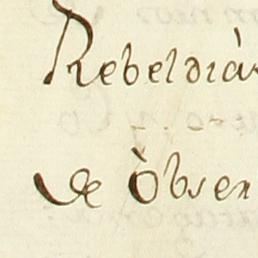 Rebeldiàs
de òbsen